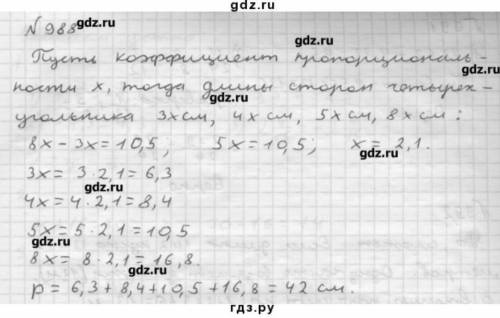 N 988 gdz.ru
Пусть коэффициент пропорциональ-
ности x, тогда длины сторон четырех-
gdz.ru gdz.ru
угольника 3x см, 4x см, 5x см, 8x см:
8x - 3x = 10,5; 5x = 10,5; x = 2,1.
gdz.ru gdz.ru
3x = 3·2,1 = 6,3
4x = 4·2,1 = 8,4 gdz.ru
5x = 5·2,1 = 10,5
gdz.ru
8x = 8·2,1 = 16,8. gdz.ru
p = 6,3 + 8,4 + 10,5 + 16,8 = 42 см.
гдз.ру